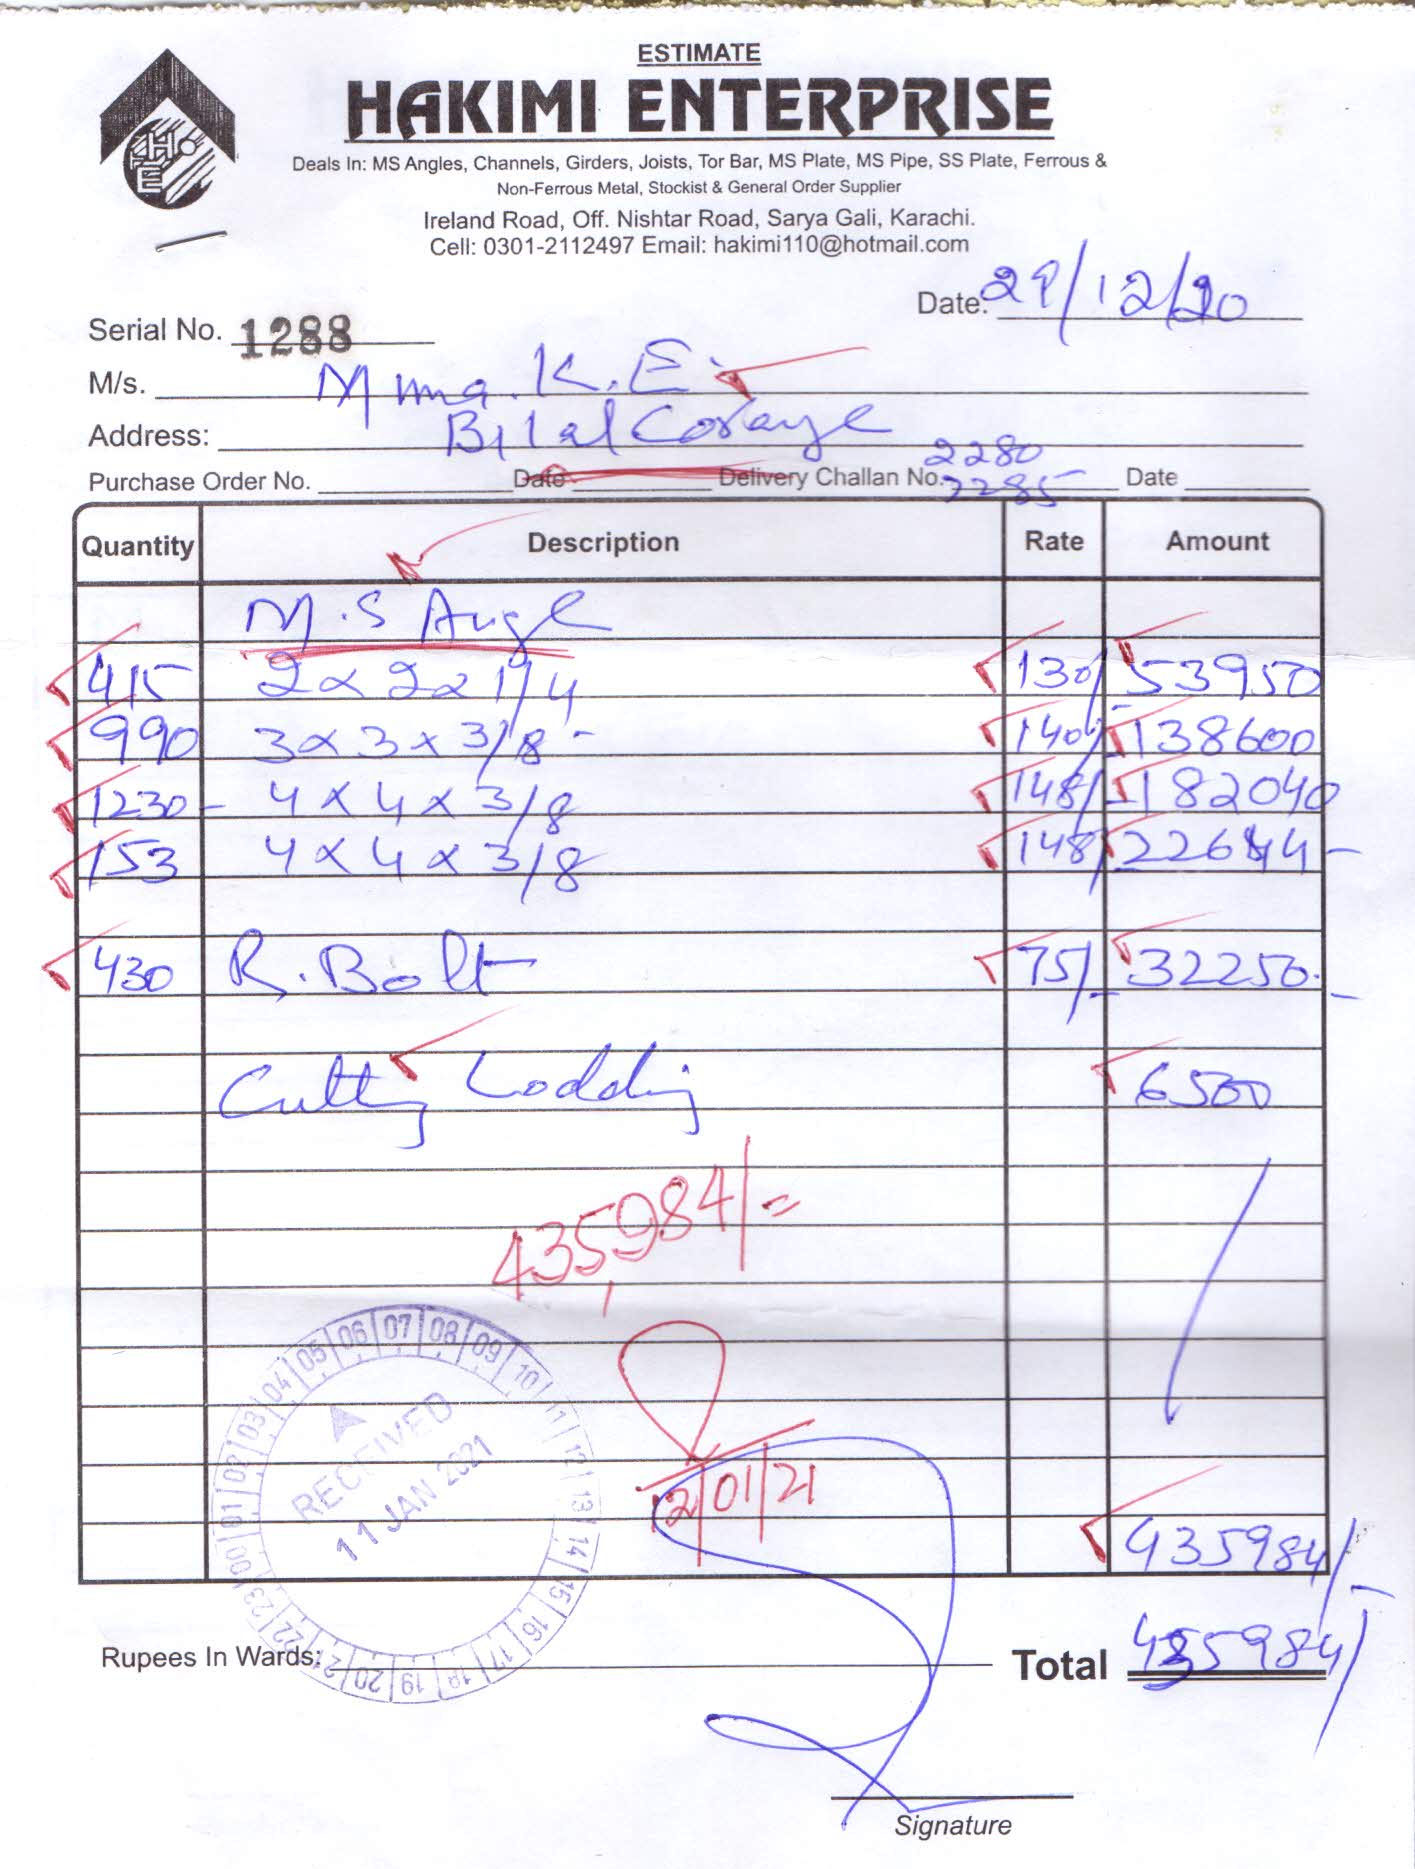 ESTIMATE
HAKIMI ENTERPRISE
HE
E
Deals In: MS Angles, Channels, Girders, Joists, Tor Bar, MS Plate, MS Pipe, SS Plate, Ferrous &
Non-Ferrous Metal, Stockist & General Order Supplier
Ireland Road, Off. Nishtar Road, Sarya Gali, Karachi.
Cell: 0301-2112497 Email: hakimi110@hotmail.com
Date. 29/12/20
Serial No. 1288
M/s. K.E.
Address: Bilal
2280
Purchase Order No. Date Delivery Challan No. 2285 Date
Quantity Description Rate Amount
M.S Angl
415 2x2x1/4 130/- 53950
990 3x3x3/8 140/- 138600
1230 4x4x3/8 148/- 182040
153 4x4x3/8 148/- 22644-
430 R.Bolt 75/- 32250.-
Cutting Lodding 6500
435,984/=
05 06 07 08 09 10 11 12 13 14 15 16 17 18 19 20 21 22 23 00 01 02 03 04
RECEIVED
11 JAN 2021
12/01/21
435984/-
Rupees In Wards: Total 435984/-
Signature